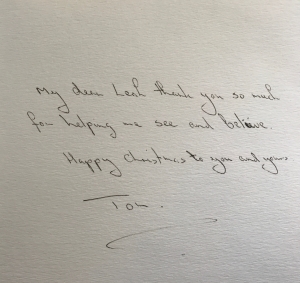 My dear Leah thank you so much
for helping me see and believe.
Happy Christmas to you and yours
Tom.